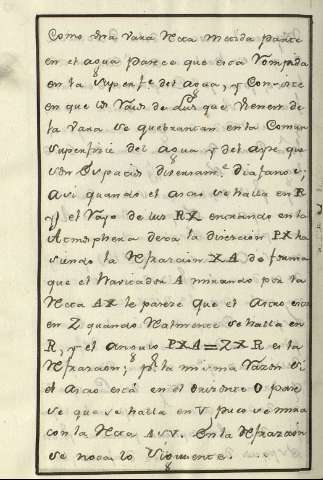 Como una vara recta metida parte
en el agua parece que esta rompida
en la superfe. del agua, y consiste
en que los rayos de Luz que vienen de
la vara se quebrantan en la comun
superficie del agua y del ayre que
son espacios diferentem.e diafanos;
asi quando el astro se halla en R
y el rayo de luz RX entrando en la
Atmosphera dexa la direccion PX ha
siendo la refraccion XA de forma
que el Navegador A mirando por la
recta AX le parese que el Astro esta
en Z quando realmente se halla en
R, y el angulo PXA=ZXR es la
refraccion; por la misma razon si
el Astro está en el orizonte O pare
se que se halla en V pues se mira
con la recta ASV. En la refraccion
se nota lo siguiente.